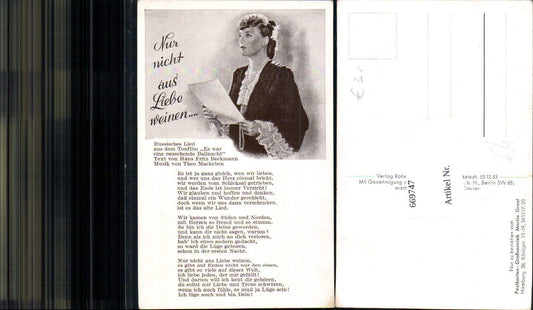 Nur
nicht
aus
Liebe
weinen....
Russisches Lied
aus dem Tonfilm „Es war
eine rauschende Ballnacht"
Text von Hans Fritz Beckmann
Musik von Theo Mackeben
Es ist ja ganz gleich, wen wir lieben,
und wer uns das Herz einmal bricht,
wir werden vom Schicksal getrieben,
und das Ende ist immer Verzicht!
Wir glauben und hoffen und denken,
daß einmal ein Wunder geschieht,
doch wenn wir uns dann verschenken,
ist es das alte Lied.
Wir kamen von Süden und Norden,
mit Herzen so fremd und so stumm.
So bin ich die Deine geworden,
und kann dir nicht sagen, warum!
Denn als ich mich an dich verloren,
hab' ich eines andern gedacht,
so ward die Lüge geboren,
schon in der ersten Nacht.
Nur nicht aus Liebe weinen,
es gibt auf Erden nicht nur den einen,
es gibt so viele auf dieser Welt,
ich liebe jeden, der mir gefällt!
Und darum will ich heut dir gehören,
du sollst mir Liebe und Treue schwören,
wenn ich auch fühle, es muß ja Lüge sein!
Ich lüge auch und bin Dein!
Verlag Rota
Mit Genehmigung d
erschi
669747
Artikel Nr.
stedt 53 12 53
b. H., Berlin SW 68,
Klavier
Nur zu beziehen vom
Postkarten-Großvertrieb Martin Graaf
Hamburg 36, Königstr. 15-19,